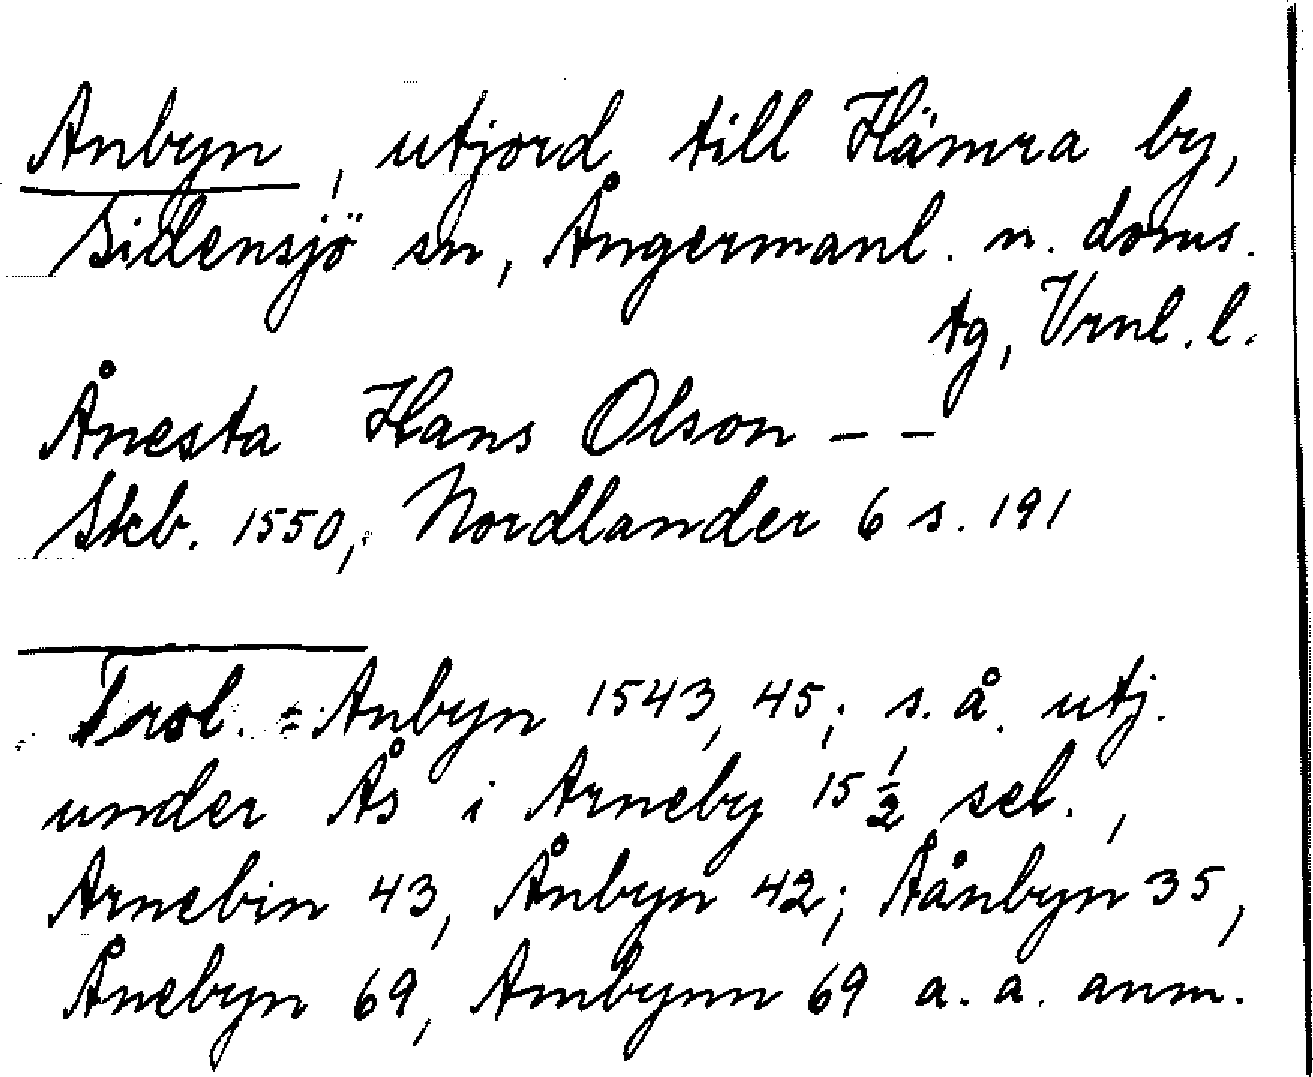 Anbyn, utjord till Hämra by,
Sidensjö sn, Ångermanl. n. doms.
tg, Vrnl. l.
Ånesta Hans Olson – –
Skb. 1550, Nordlander 6 s. 191
= Anbyn 1543, 45; s. å. utj.
under Ås i Arneby 15 1/2 sel.,
Arnebin 43, Ånbyn 42; Aånbyn 35,
Ånebyn 69, Ambynn 69 a. a. anm.